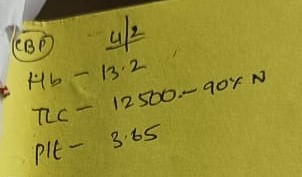 CBP 4/2
Hb - 13.2
TLC - 12500 - 90% N
Plt - 3.65